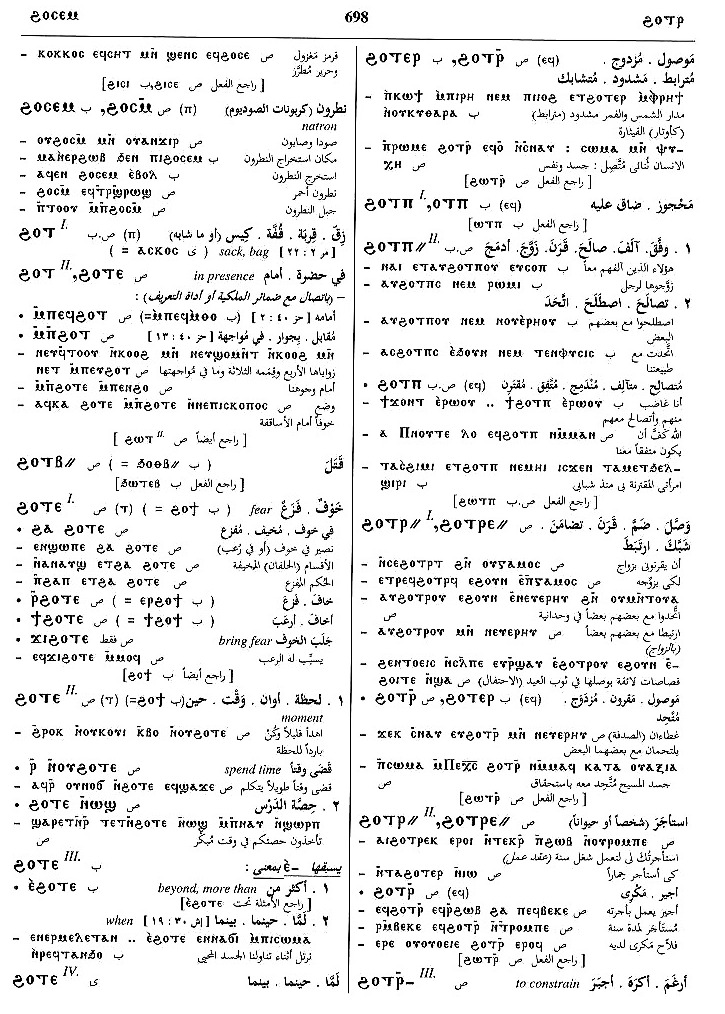 ϩⲟⲥⲉⲙ 698 ϩⲟⲧⲣ
– ⲕⲟⲕⲕⲟⲥ ⲉϥⲥⲏⲧ ⲙⲛ̄ ϣⲉⲛⲥ ⲉϥϩⲟⲥⲉ ص قرمز مغزول
وحرير مُطرَّز
[راجع الفعل ϩⲓⲥⲉ ص،ب ϧⲓⲥⲓ]
ϩⲟⲥⲉⲙ ب ,ϩⲟⲥⲙ̄ ص (ⲡ) نطرون (كربونات الصوديوم)
natron
– ⲟⲩϩⲟⲥⲙ̄ ⲙⲛ̄ ⲟⲩⲁⲛϫⲓⲣ ص صودا وصابون
– ⲙⲁⲛⲉⲣϩⲱⲃ ϧⲉⲛ ⲡⲓϩⲟⲥⲉⲙ ب مكان استخراج النطرون
– ⲁϥⲉⲛ ϩⲟⲥⲉⲙ ⲉ̀ⲃⲟⲗ ب استخرج النطرون
– ϩⲟⲥⲙ̄ ⲉϥⲧⲣ̄ϣⲣⲱϣ ص نطرون أحمر
– ⲛ̄ⲧⲟⲟⲩ ⲙ̄ⲡϩⲟⲥⲙ̄ ص جبل النطرون
ϩⲟⲧ I. (ⲡ) ص.ب زِقّ . قِربَة . قُفَّة . كِيس (أو ما شابه)
( = ⲁⲥⲕⲟⲥ ى ) sack, bag [مر ٢ : ٢٢]
ϩⲟⲧ II. ,ϩⲟⲧⲉ ص in presence في حضرة . أمام
– (باتصال مع ضمائر الملكية أو أداة التعريف) :
• ⲙ̄ⲡⲉϥϩⲟⲧ ص (=ⲙ̄ⲡⲉϥⲙ̀ⲑⲟ ب) أمامه [حز ٤٠ : ٢]
• ⲙ̄ⲡϩⲟⲧ ص مُقابل . بِجوار . في مُواجهة [حز ٤٠ : ١٣]
– ⲛⲉⲩϥⲧⲟⲟⲩ ⲛ̄ⲕⲟⲟϩ ⲙⲛ̄ ⲛⲉⲩϣⲟⲙⲛ̄ⲧ ⲛ̄ⲕⲟⲟϩ ⲙⲛ̄
ⲛⲉⲧ ⲙ̄ⲡⲉⲩϩⲟⲧ ص زواياها الأربع وقِمَمه الثلاثة وما في مُواجهتها
– ⲙ̄ⲡϩⲟⲧⲉ ⲙ̄ⲡⲉⲛϩⲟ ص أمام وجوهنا
– ⲁϥⲕⲁ ϩⲟⲧⲉ ⲙ̄ⲡϩⲟⲧⲉ ⲛ̄ⲛⲉⲡⲓⲥⲕⲟⲡⲟⲥ ص وضع
خوفاً أمام الأساقفة
[راجع أيضاً ص ϩⲱⲧ II.]
ϩⲟⲧⲃ// ص ( = ϧⲟⲑⲃ// ب ) قَتَلَ
[راجع الفعل ب ϧⲱⲧⲉⲃ]
ϩⲟⲧⲉ I. ص (ⲧ) ( = ϩⲟϯ ب ) fear خَوْفٌ . فَزَعٌ
• ϩⲁ ϩⲟⲧⲉ ص في خوف . مُخيف . مُفزع
– ⲉⲛϣⲱⲡⲉ ϩⲁ ϩⲟⲧⲉ ص نَصير في خوف (أو في رُعب)
– ⲛ̄ⲁⲛⲁϣ ⲉⲧϩⲁ ϩⲟⲧⲉ ص الأقسام (الحلفان) المُخيفة
– ⲛ̄ϩⲁⲡ ⲉⲧϩⲁ ϩⲟⲧⲉ ص الحكم المُفزع
• ⲣ̄ϩⲟⲧⲉ ص ( = ⲉⲣϩⲟϯ ب ) خافَ . فَزَعَ
• ϯϩⲟⲧⲉ ص ( = ϯϩⲟϯ ب ) أخافَ . أرعَبَ
• ϫⲓϩⲟⲧⲉ ص فقط bring fear جَلَبَ الخوف
– ⲉϥϫⲓϩⲟⲧⲉ ⲙ̄ⲙⲟϥ ص يسبِّب له الرعب
[راجع أيضاً ب ϩⲟϯ]
ϩⲟⲧⲉ II. ص (ⲧ) (=ϩⲟϯ ب) ١ . لحظة . أوان . وَقْت . حين
moment
– ϭⲣⲟⲕ ⲛ̄ⲟⲩⲕⲟⲩⲓ ⲕⲃⲟ ⲛ̄ⲟⲩϩⲟⲧⲉ ص اهدأ قليلاً وكُنْ
بارداً للحظة
• ⲣ̄ ⲛ̄ⲟⲩϩⲟⲧⲉ ص spend time قضَى وقتاً
– ⲁϥⲣ̄ ⲟⲩⲛⲟϭ ⲛ̄ϩⲟⲧⲉ ⲉϥϣⲁϫⲉ ص قضى وقتاً طويلاً يتكلم
• ϩⲟⲧⲉ ⲛ̄ⲱϣ ص ٢ . حِصَّة الدَّرْس
– ϣⲁⲣⲉⲧⲛ̄ⲣ̄ ⲧⲉⲧⲛ̄ϩⲟⲧⲉ ⲛ̄ⲱϣ ⲙ̄ⲡⲛⲁⲩ ⲛ̄ϣⲱⲣⲡ
ص تأخذون حصتكم في وقت مُبكِّر
ϩⲟⲧⲉ III. ب يسبقها ⲉ̀– بمعنى :
• ⲉ̀ϩⲟⲧⲉ ب beyond, more than ١ . أكثر من
[راجع الأمثلة تحت ⲉ̀ϩⲟⲧⲉ]
when ٢ . لَمَّا . حينما . بينما [إش ٣٠ : ١٩]
– ⲉⲛⲉⲣⲙⲉⲗⲉⲧⲁⲛ .. ⲉ̀ϩⲟⲧⲉ ⲉⲛⲛⲁϭⲓ ⲙ̀ⲡⲓⲥⲱⲙⲁ
ⲛ̀ⲣⲉϥⲧⲁⲛϧⲟ ب نرتل أثناء تناولنا الجسد المُحيي
ϩⲟⲧⲉ IV. ى لَمَّا . حينما . بينما
ϩⲟⲧⲉⲣ ب ,ϩⲟⲧⲣ̄ ص (eq) مَوصول . مُزدوج .
مُترابط . مَشدود . مُتشابك
– ⲡ̀ⲕⲱϯ ⲙ̀ⲡⲓⲣⲏ ⲛⲉⲙ ⲡⲓⲓⲟϩ ⲉⲧϩⲟⲧⲉⲣ ⲙ̀ⲫⲣⲏϯ
ⲛ̀ⲟⲩⲕⲩⲑⲁⲣⲁ ب مدار الشمس والقمر مشدود (مترابط)
(كأوتار) القيثارة
– ⲡ̄ⲣⲱⲙⲉ ϩⲟⲧⲣ̄ ⲉϥⲟ̄ ⲛ̄ⲥⲛⲁⲩ : ⲥⲱⲙⲁ ⲙⲛ̄ ⲯⲩ–
ⲭⲏ ص الانسان ثُنائي مُتَّصِل : جسد ونفس
[راجع الفعل ص ϩⲱⲧⲣ̄]
ϩⲟⲧⲡ I. ,ⲟⲧⲡ ب (eq) مَحْجوز . ضاق عليه
[ⲱⲧⲡ ب]
ϩⲟⲧⲡ// II. ص.ب ١ . وَفَّقَ . آلَفَ . صالَحَ . قَرَنَ . زَوَّجَ . أدمَجَ
– ⲛⲁⲓ ⲉⲧⲁⲩϩⲟⲧⲡⲟⲩ ⲉⲩⲥⲟⲡ ب هؤلاء الذين آلفهم معاً
– ⲁⲩϩⲟⲧⲡⲥ ⲛⲉⲙ ⲣⲱⲙⲓ ب زوَّجوها لرجل
٢ . تصالَحَ . اصطَلَحَ . اتَّحَدَ
– ⲁⲩϩⲟⲧⲡⲟⲩ ⲛⲉⲙ ⲛⲟⲩⲉ̀ⲣⲏⲟⲩ ب اصطلحوا مع بعضهم
البعض
– ⲁⲥϩⲟⲧⲡⲥ ⲉ̀ϧⲟⲩⲛ ⲛⲉⲙ ⲧⲉⲛⲫⲩⲥⲓⲥ ب اتَّحدت مع
طبيعتنا
• ϩⲟⲧⲡ ص.ب (eq) مُتصالح . متآلف . مُندمج . مُتَّفِق . مُقترن
– ϯϫⲟⲛⲧ ⲉ̀ⲣⲱⲟⲩ .. ϯϩⲟⲧⲡ ⲉ̀ⲣⲱⲟⲩ ب أنا غاضب
منهم وأتصالح معهم
– ⲁ Ⲡⲛⲟⲩⲧⲉ ⲗⲟ ⲉϥϩⲟⲧⲡ ⲛⲙ̄ⲙⲁⲛ ص الله كَفَّ أن
يكون متفقاً معنا
– ⲧⲁⲥϩⲓⲙⲓ ⲉⲧϩⲟⲧⲡ ⲛⲉⲙⲏⲓ ⲓⲥϫⲉⲛ ⲧⲁⲙⲉⲧϧⲉⲗ–
ϣⲓⲣⲓ ب امرأتي المُقترنة بي منذ شبابي
[راجع الفعل ص.ب ϩⲱⲧⲡ]
ϩⲟⲧⲣ// I. ,ϩⲟⲧⲣⲉ// ص وَصَّلَ . ضَمَّ . قَرَنَ . تضامَن .
شَبَّكَ . ارتبَطَ
– ⲛ̄ⲥⲉϩⲟⲧⲣⲧ ϩⲛ̄ ⲟⲩⲅⲁⲙⲟⲥ ص أن يقرنوني بزواج
– ⲉⲧⲣⲉϥϩⲟⲧⲣϥ ⲉϩⲟⲩⲛ ⲉⲡ̄ⲅⲁⲙⲟⲥ ص لكي يزوِّجه
– ⲁⲩϩⲟⲧⲣⲟⲩ ⲉϩⲟⲩⲛ ⲉⲛⲉⲩⲉⲣⲏⲩ ϩⲛ̄ ⲟⲩⲙⲛ̄ⲧⲟⲩⲁ
ص اتَّحدوا مع بعضهم بعضاً في وحدانية
– ⲁⲩϩⲟⲧⲣⲟⲩ ⲙⲛ̄ ⲛⲉⲩⲉⲣⲏⲩ ص ارتبطا مع بعضهم بعضاً
(بالزواج)
– ϩⲉⲛⲧⲟⲉⲓⲥ ⲛ̄ⲥⲗ̄ⲡⲉ ⲉⲩⲣ̄ϣⲁⲩ ⲉϩⲟⲧⲣⲟⲩ ⲉϩⲟⲩⲛ ⲉ–
ϩⲟⲓⲧⲉ ⲛ̄ϣⲁ ص قصاصات لائقة بوصلها في ثوب العيد (الاحتفال)
• ϩⲟⲧⲣ̄ ص ,ϩⲟⲧⲉⲣ ب (eq) مَوصول . مَقرون . مُزدَوج .
مُتَّحِد
– ϫⲉⲕ ⲥⲛⲁⲩ ⲉⲩϩⲟⲧⲣ̄ ⲙⲛ̄ ⲛⲉⲩⲉⲣⲏⲩ ص غطاءان (الصدفة)
يلتحمان مع بعضهما البعض
– ⲡⲥⲱⲙⲁ ⲙ̄ⲡⲉⲭ̄ⲥ̄ ϩⲟⲧⲣ̄ ⲛⲙ̄ⲙⲁϥ ⲕⲁⲧⲁ ⲟⲩⲁⲝⲓⲁ
ص جسد المسيح مُتَّحِد معه باستحقاق
[راجع الفعل ص ϩⲱⲧⲣ̄]
ϩⲟⲧⲣ// II. ,ϩⲟⲧⲣⲉ// ص استأجَرَ (شخصاً أو حيواناً)
– ⲁⲓϩⲟⲧⲣⲉⲕ ⲉⲣⲟⲓ ⲛ̄ⲧⲉⲕⲣ̄ ⲡϩⲱⲃ ⲛ̄ⲟⲩⲣⲟⲙⲡⲉ ص
استأجرتُك لي لتعمل شغل سنة (عقد عمل)
– ⲛ̄ⲧⲁϩⲟⲧⲉⲣ ⲛ̄ⲓⲱ ص كي أستأجر حِماراً
• ϩⲟⲧⲣ̄ ص (eq) أجير . مَكْري
– ⲉϥϩⲟⲧⲣ̄ ⲉϥⲣ̄ϩⲱⲃ ϩⲁ ⲡⲉϥⲃⲉⲕⲉ ص أجير يعمل بأجرته
– ⲣⲙ̄ⲃⲉⲕⲉ ⲉϥϩⲟⲧⲣ̄ ⲛ̄ⲧⲣⲟⲙⲡⲉ ص مُستأجر لمدة سنة
– ⲉⲣⲉ ⲟⲩⲟⲩⲟⲉⲓⲉ ϩⲟⲧⲣ̄ ⲉⲣⲟϥ ص فلاَّح مَكرى لديه
[راجع الفعل ص ϩⲱⲧⲣ̄]
ϩⲟⲧⲣ̄– III. ص to constrain أرغَمَ . أكرَهَ . أجبَرَ